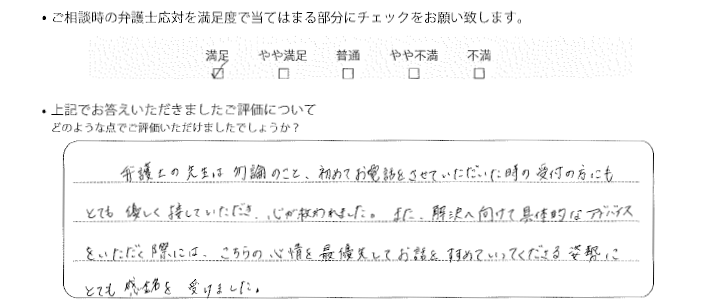 ・ご相談時の弁護士応対を満足度で当てはまる部分にチェックをお願い致します。
満足 やや満足 普通 やや不満 不満
・上記でお答えいただきましたご評価について
どのような点でご評価いただけましたでしょうか？
弁護士の先生は勿論のこと、初めてお電話をさせていただいた時の受付の方にも
とても優しく接していただき、心が救われました。また、解決へ向けて具体的なアドバイス
をいただく際には、こちらの心情を最優先してお話をすすめていってくださる姿勢に
とても感銘を受けました。